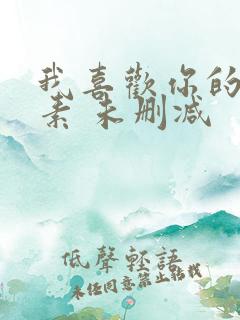 我喜歡你的
素 未删减
低聲輕語
未经同意禁止转载